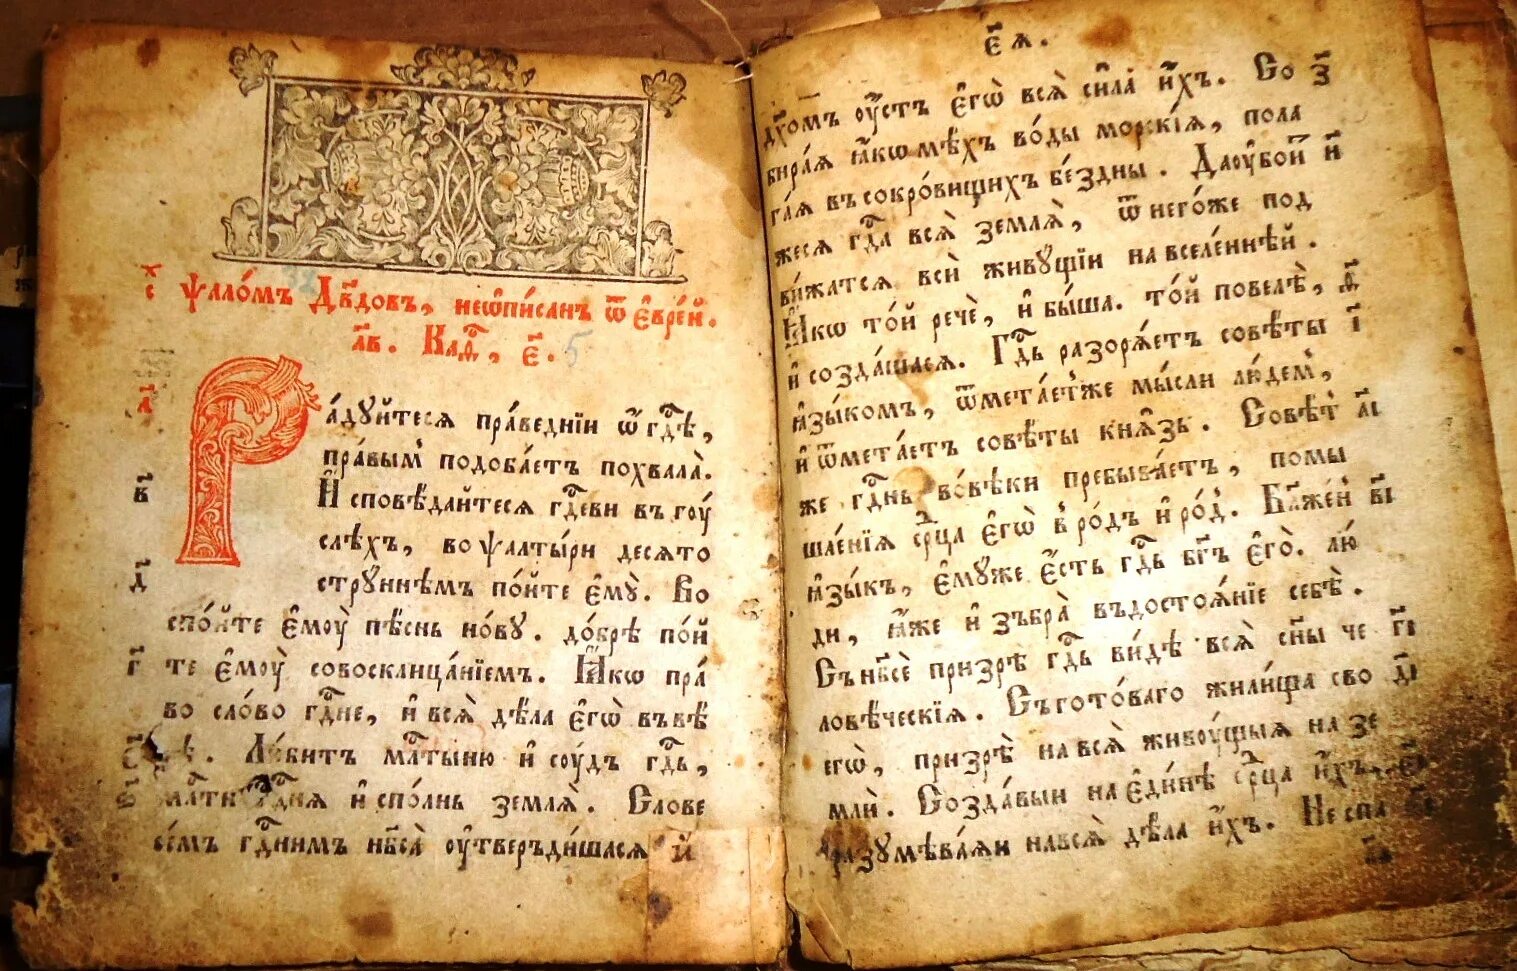 Ѱало́мъ Дв҃довъ, неѡ҆писанъ ѿ є҆вре́й.
л҃в. Каѳ, є҃.
Ра́дуйтеся пра́веднїи ѡ҆ гдⷭ҇ѣ,
пра́вымъ подоба́етъ похвала̀.
И҆сповѣ́дайтеся гдⷭ҇еви въ гоу́
слехъ, во ѱалты́ри десято
стру́ннѣмъ по́йте є҆мꙋ̀. Во
спо́йте є҆моу̀ пѣ́снь но́вꙋ. до́брѣ по́й
те є҆моу̀ совосклица́нїемъ. Ꙗ҆́кѡ пра́
во сло́во гдⷭ҇не, и҆ вся̀ дѣ́ла є҆гѡ̀ въ вѣ́
рѣ. Лю́битъ млⷭ҇тыню и҆ соу́дъ гдⷭ҇ь,
млⷭ҇ти гдⷭ҇ня и҆спо́лнь земля̀. Слове
се́мъ гдⷭ҇нимъ нб҃са̀ оу҆тверъди́шася и҆
є҃я.
дх҃омъ оу҆́стъ є҆гѡ̀ вся̀ си́ла и҆́хъ. Со
бира́я ꙗ҆́кѡ мѣ́хъ во́ды морскі́я, пола
га́я въ сокро́вищихъ бе́здны. Да оу҆бои́
жеся гдⷭ҇а вся̀ земля̀, ѿ него́же под
ви́жатся всѝ живꙋ́щїи на вселе́ннѣй.
Ꙗ҆́кѡ то́й речѐ, и҆ бы́ша. то́й повелѣ̀,
и҆ созда́шася. Гдⷭ҇ь разоря́етъ совѣ́ты
ꙗ҆зы́комъ, ѿмета́етже мы́сли лю́демъ,
и҆ ѿмета́етъ совѣ́ты кня̑зь. Совѣ́т
же гдⷭ҇нь во вѣ́ки пребыва́етъ, помы
шле́нїя срⷣца є҆гѡ̀ в ро́дъ и҆ ро́д. Блаже́н
ꙗ҆зы́къ, є҆мꙋ́же є҆́сть гдⷭ҇ь бг҃ъ є҆го̀. лю́
ди, ꙗ҆̀же и҆збра̀ въ достоя́нїе себѣ̀.
Съ нб҃сѐ призрѣ̀ гдⷭ҇ь ви́дѣ вся̀ сн҃ы че
ловѣ́ческїя. Съ гото́ваго жили́ща сво
егѡ̀, призрѣ̀ на вся̀ живоу́щыя на зе
млѝ. Созда́выи на є҆ди́нѣ срⷣца и҆́хъ,
разумѣва́яи на вся̀ дѣ́ла и҆́хъ. Не спа